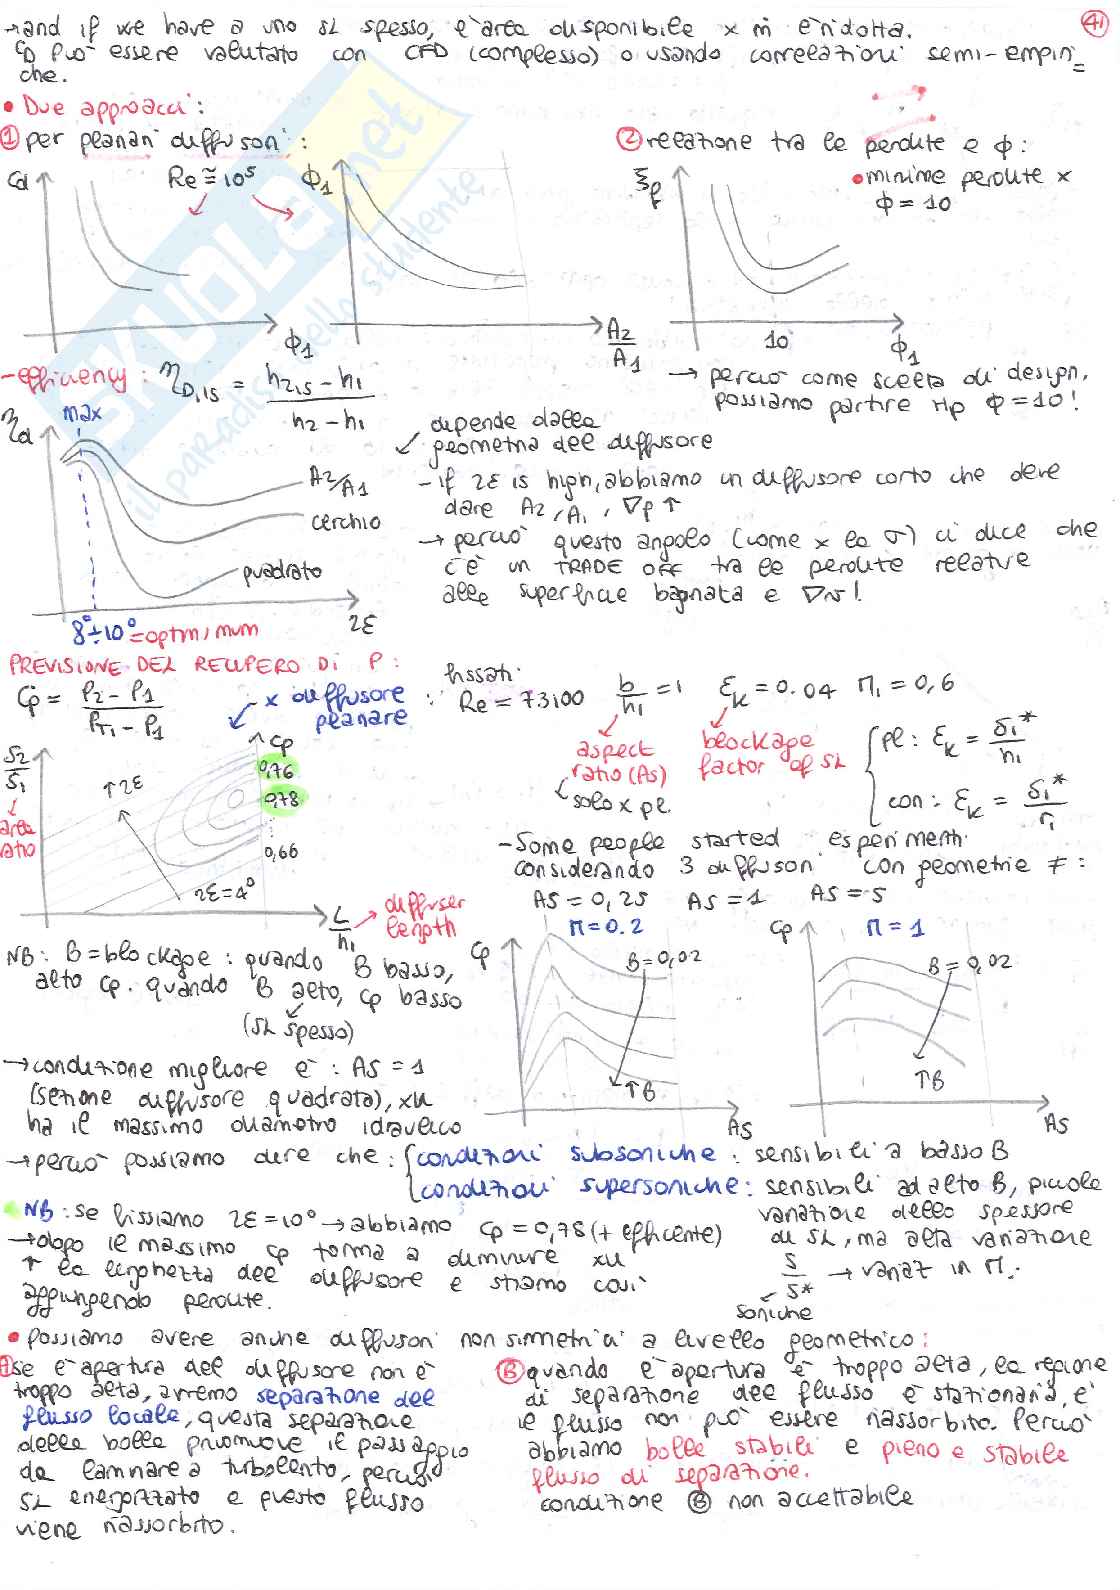 → and if we have a uno SL spesso, l'area disponibile x ṁ è ridotta.
41
CD può essere valutato con CFD (complesso) o usando correlazioni semi-empiri=
che.
• Due approcci:
① per planari diffusori:
② relazione tra le perdite e ϕ:
Cd
Re ≅ 10⁵
ϕ1
ξp
• minime perdite x
ϕ = 10
ϕ1
A2/A1
10
ϕ1
→ perciò come scelta di design,
possiamo partire Hp ϕ = 10!
- efficiency: ηD,is = (h2,is - h1)/(h2 - h1)
ηd
max
A2/A1
cerchio
quadrato
8°÷10° = optimum
2ε
depende dalla
geometria del diffusore
- if 2ε is high, abbiamo un diffusore corto che deve
dare A2/A1, ∇p ↑
→ perciò questo angolo (come x la σ) ci dice che
c'è un TRADE OFF tra le perdite relative
alle superficie bagnata e ∇v!
PREVISIONE DEL RECUPERO DI P:
Cp = (P2 - P1)/(PT1 - P1)
x diffusore
planare
:
fissati:
Re = 73100 b/h1 = 1 εk = 0.04 M1 = 0,6
aspect
ratio (As)
solo x pl.
blockage
factor of SL
pl: εk = δ1*/h1
con: εk = δ1*/r1
S2/S1
area
ratio
↑2ε
2ε = 4°
Cp
0,76
0,78
⋮
0,66
L/h1 → diffuser
length
- Some people started esperimenti
considerando 3 diffusori con geometrie ≠:
AS = 0,25 AS = 1 AS = 5
Cp
M = 0.2
B = 0,02
↑B
AS
Cp
M = 1
B = 0,02
↑B
AS
NB: B = blockage: quando B basso,
alto Cp. quando B alto, Cp basso
(SL spesso)
→ condizione migliore è: AS = 1
(sezione diffusore quadrata), xké
ha il massimo diametro idraulico
→ perciò possiamo dire che: { condizioni subsoniche: sensibili a basso B
condizioni supersoniche: sensibili ad alto B, piccole
variazione dello spessore
di SL, ma alta variazione
S/S* → variaz in M.
soniche
NB: se fissiamo 2ε = 10° → abbiamo Cp = 0,78 (+ efficente)
→ dopo il massimo Cp torna a diminuire xké
↑ la lunghezza del diffusore e stiamo così
aggiungendo perdite.
• possiamo avere anche diffusori non simmetrici a livello geometrico:
se l'apertura del diffusore non è
troppo alta, avremo separazione del
flusso locale, questa separazione
delle bolle promuove il passaggio
da laminare a turbolento, perciò
SL energizzato e questo flusso
viene riassorbito.
Ⓑ quando l'apertura è troppo alta, la regione
di separazione del flusso è stazionaria, e
il flusso non può essere riassorbito. Perciò
abbiamo bolle stabili e pieno e stabile
flusso di separazione.
condizione Ⓑ non accettabile
SKUOLA.net
il paradiso dello studente